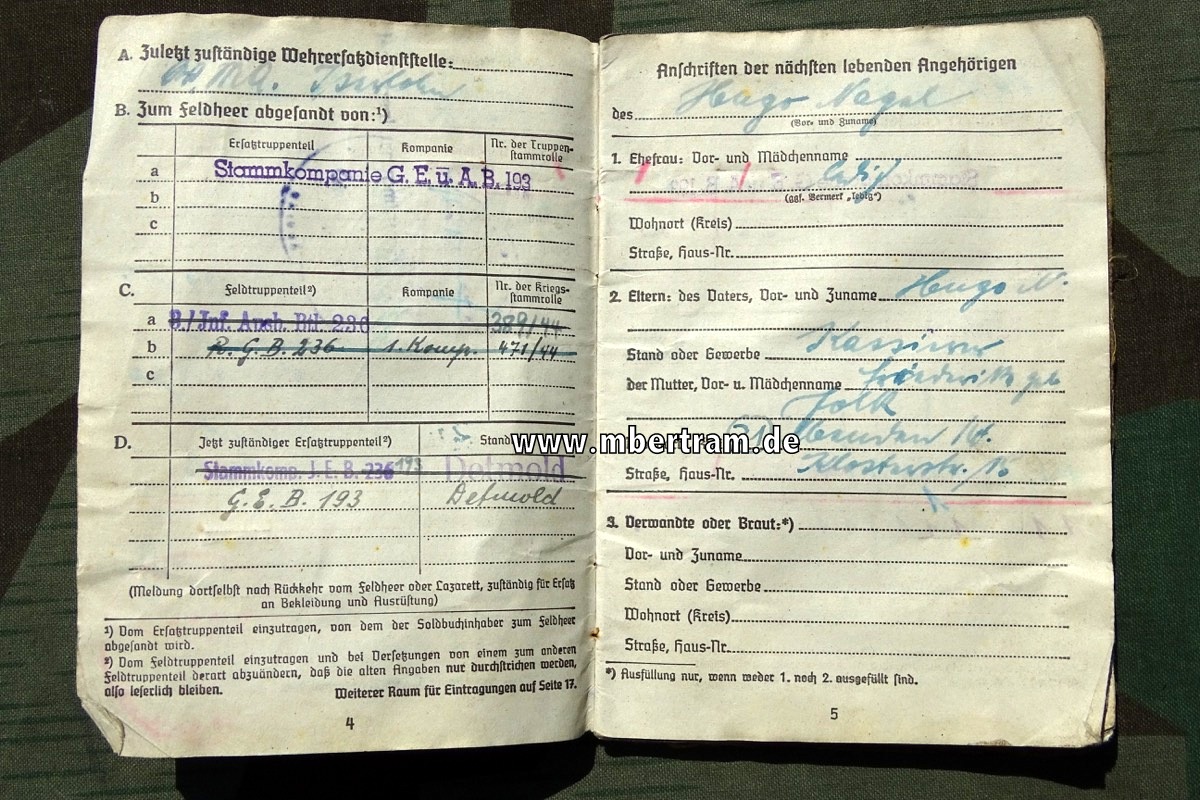 A. Zuletzt zuständige Wehrersatzdienststelle:
B. Zum Feldheer abgesandt von:¹)
Ersatztruppenteil Kompanie Nr. der Truppen-
stammrolle
a Stammkompanie G. E. u. A. B. 193
b
c
C. Feldtruppenteil²) Kompanie Nr. der Kriegs-
stammrolle
a 3./Inf. Ausb. Btl. 236 389/44
b R. G. B. 236 1. Komp. 471/44
c
D. Jetzt zuständiger Ersatztruppenteil²) Stand
Stammkomp. J. E. B. 236 193 Detmold
G. E. B. 193 Detmold
(Meldung dortselbst nach Rückkehr vom Feldheer oder Lazarett, zuständig für Ersatz
an Bekleidung und Ausrüstung)
¹) Vom Ersatztruppenteil einzutragen, von dem der Soldbuchinhaber zum Feldheer
abgesandt wird.
²) Vom Feldtruppenteil einzutragen und bei Versetzungen von einem zum anderen
Feldtruppenteil derart abzuändern, daß die alten Angaben nur durchstrichen werden,
also leserlich bleiben.
Weiterer Raum für Eintragungen auf Seite 17.
4
Anschriften der nächsten lebenden Angehörigen
des Hugo Nagel
(Vor- und Zuname)
1. Ehefrau: Vor- und Mädchenname
ledig
(ggf. Vermerk „ledig")
Wohnort (Kreis)
Straße, Haus-Nr.
2. Eltern: des Vaters, Vor- und Zuname Hugo N.
Stand oder Gewerbe Kassierer
der Mutter, Vor- u. Mädchenname Friederike geb
Straße, Haus-Nr. Klosterstr. 15
3. Verwandte oder Braut:*)
Vor- und Zuname
Stand oder Gewerbe
Wohnort (Kreis)
Straße, Haus-Nr.
*) Ausfüllung nur, wenn weder 1. noch 2. ausgefüllt sind.
5
www.mbertram.de